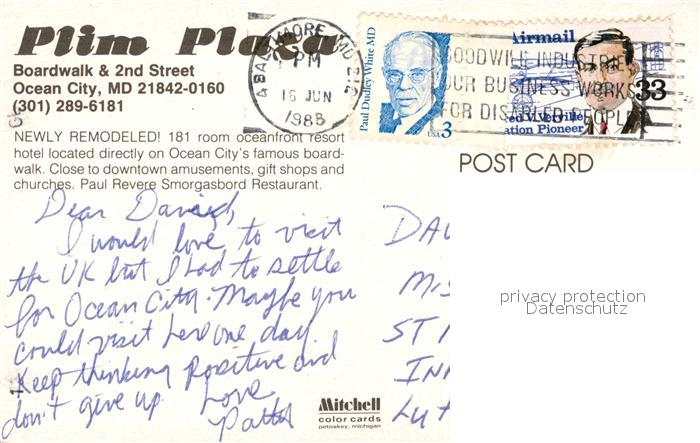 Plim Plaza
Boardwalk & 2nd Street
Ocean City, MD 21842-0160
(301) 289-6181
NEWLY REMODELED! 181 room oceanfront resort
hotel located directly on Ocean City's famous board-
walk. Close to downtown amusements, gift shops and
churches. Paul Revere Smorgasbord Restaurant.
BALTIMORE, MD
PM
16 JUN
1988
Paul Dudley White MD
USA 3
GOODWILL INDUSTRIES
OUR BUSINESS WORKS
FOR DISABLED PEOPLE
Airmail
33
Alfred V. Verville
Aviation Pioneer
POST CARD
Dear David,
I would love to visit
the UK but I had to settle
for Ocean City. Maybe you
could visit here one day.
Keep thinking positive and
don't give up. Love,
DAV
ST
LUT
privacy protection
Datenschutz
Mitchell
color cards
petoskey, michigan